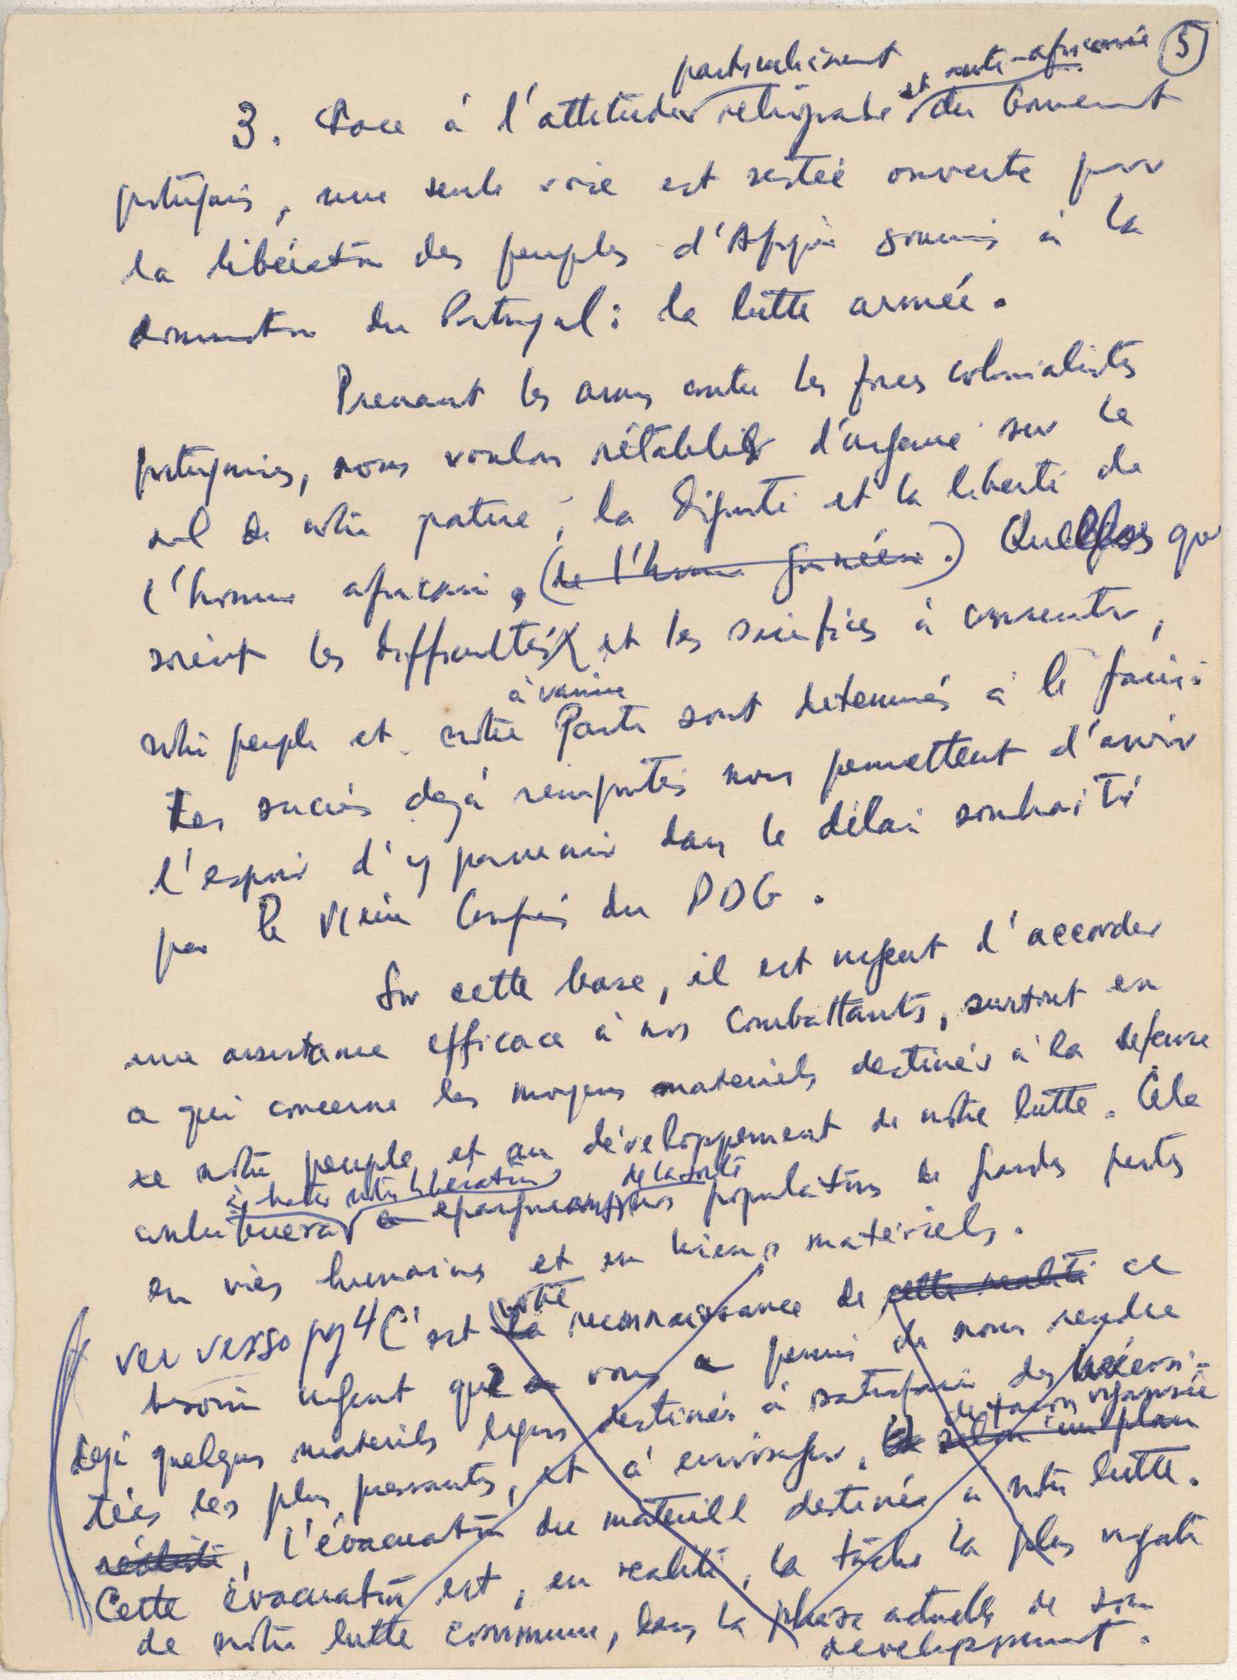 particulièrement et anti-africaine 5
3. Face à l'attitude rétrograde du Gouvernement
portugais, une seule voie est restée ouverte pour
la libération des peuples d'Afrique soumis à la
domination du Portugal: la lutte armée.
Prenant les armes contre les forces colonialistes
portugaises, nous voulons rétablir d'urgence sur le
sol de notre patrie, la dignité et la liberté de
l'homme africain, (de l'homme guinéen.) Quelles que
soient les difficultés et les sacrifices à consentir,
à vaincre
notre peuple et notre Parti sont determinés à le faire.
Les succès dejà remportés nous permettent d'avoir
l'espoir d'y parvenir dans le délai souhaité
par le VIème Congrès du PDG.
Sur cette base, il est urgent d'accorder
une assistance efficace à nos combattants, surtout en
ce qui concerne les moyens materiels destinés à la defense
de notre peuple et au développement de notre lutte. Cela
à hater notre libération de la sorte
contribuera épargner nos populations de grandes pertes
en vies humaines et en biens matériels.
ver verso pg 4 C'est la reconnaissance de cette realité ce
votre
besoin urgent que vous a permis de nous rendre
dejà quelques materiels legers destinés à satisfaire des nécessi-
de façon organisée
tées les plus pressantes, et à envisager, selon un plan
, l'évacuation du materiell destiné à notre lutte.
Cette évacuation est, en realité, la tâche la plus urgente
de notre lutte commune, dans la phase actuelle de son
developpement.